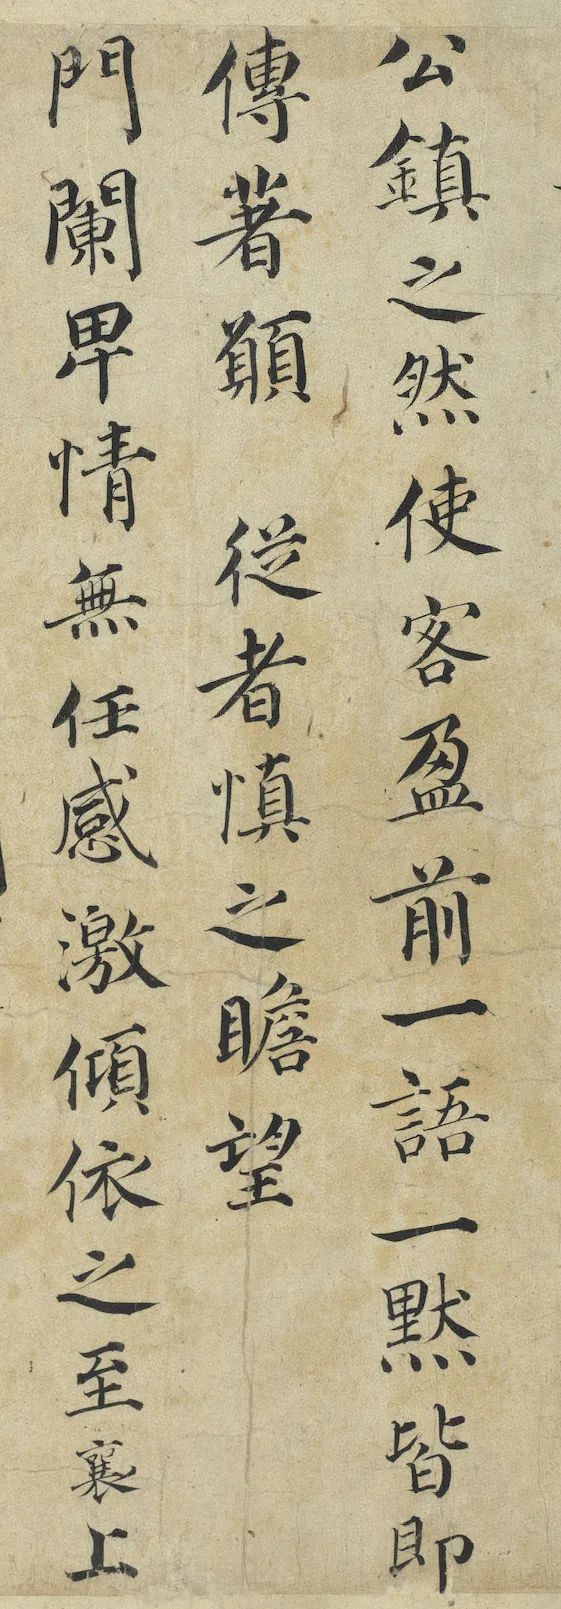 公鎮之然使客盈前一語一黙皆即
傳著顗 從者慎之瞻望
門闌卑情無任感激傾依之至襄上